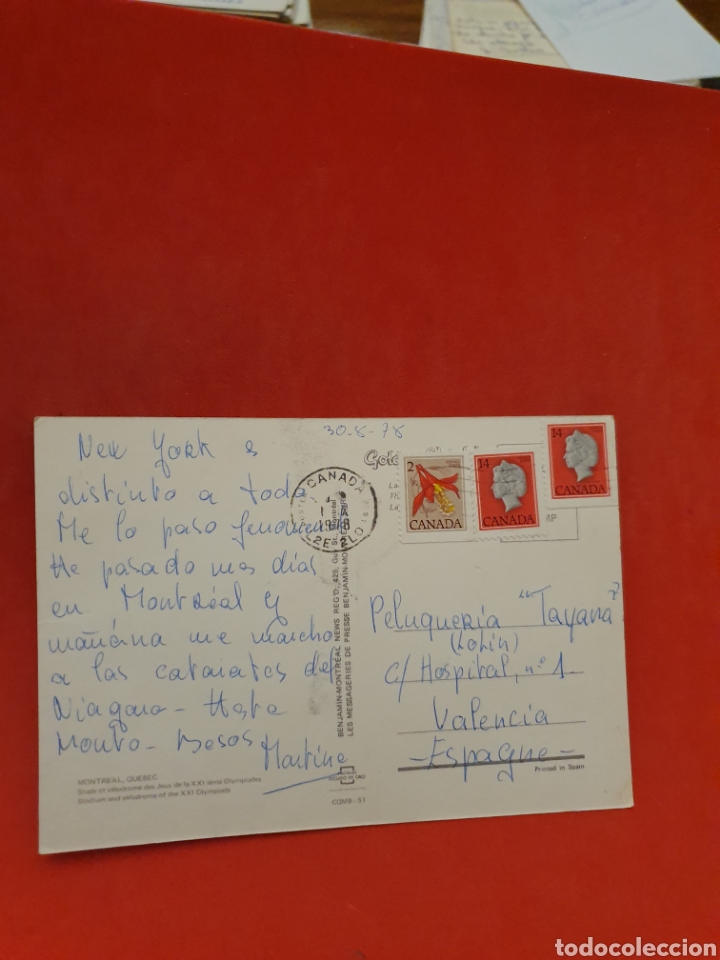 30-8-78
New York es
distinto a todo
Me lo paso fenomenal
He pasado unos dias
en Montréal y
mañana me marcho
a las cataratas del
Niagara - Hasta
Pronto - Besos
Martine
MONTREAL, QUEBEC
Stade et vélodrome des Jeux de la XXI ième Olympiades
Stadium and velodrome of the XXI Olympiads
BENJAMIN-MONTRÉAL NEWS REG'D., 425, Guy St., Montréal
LES MESSAGERIES DE PRESSE BENJAMIN-MONTRÉAL
CANADA
1978
2
CANADA
14
CANADA
14
CANADA
Peluqueria "Tayana"
(Lolin)
c/ Hospital, nº 1
Valencia
- Espagne -
Printed in Spain
COMB - 51
todocoleccion